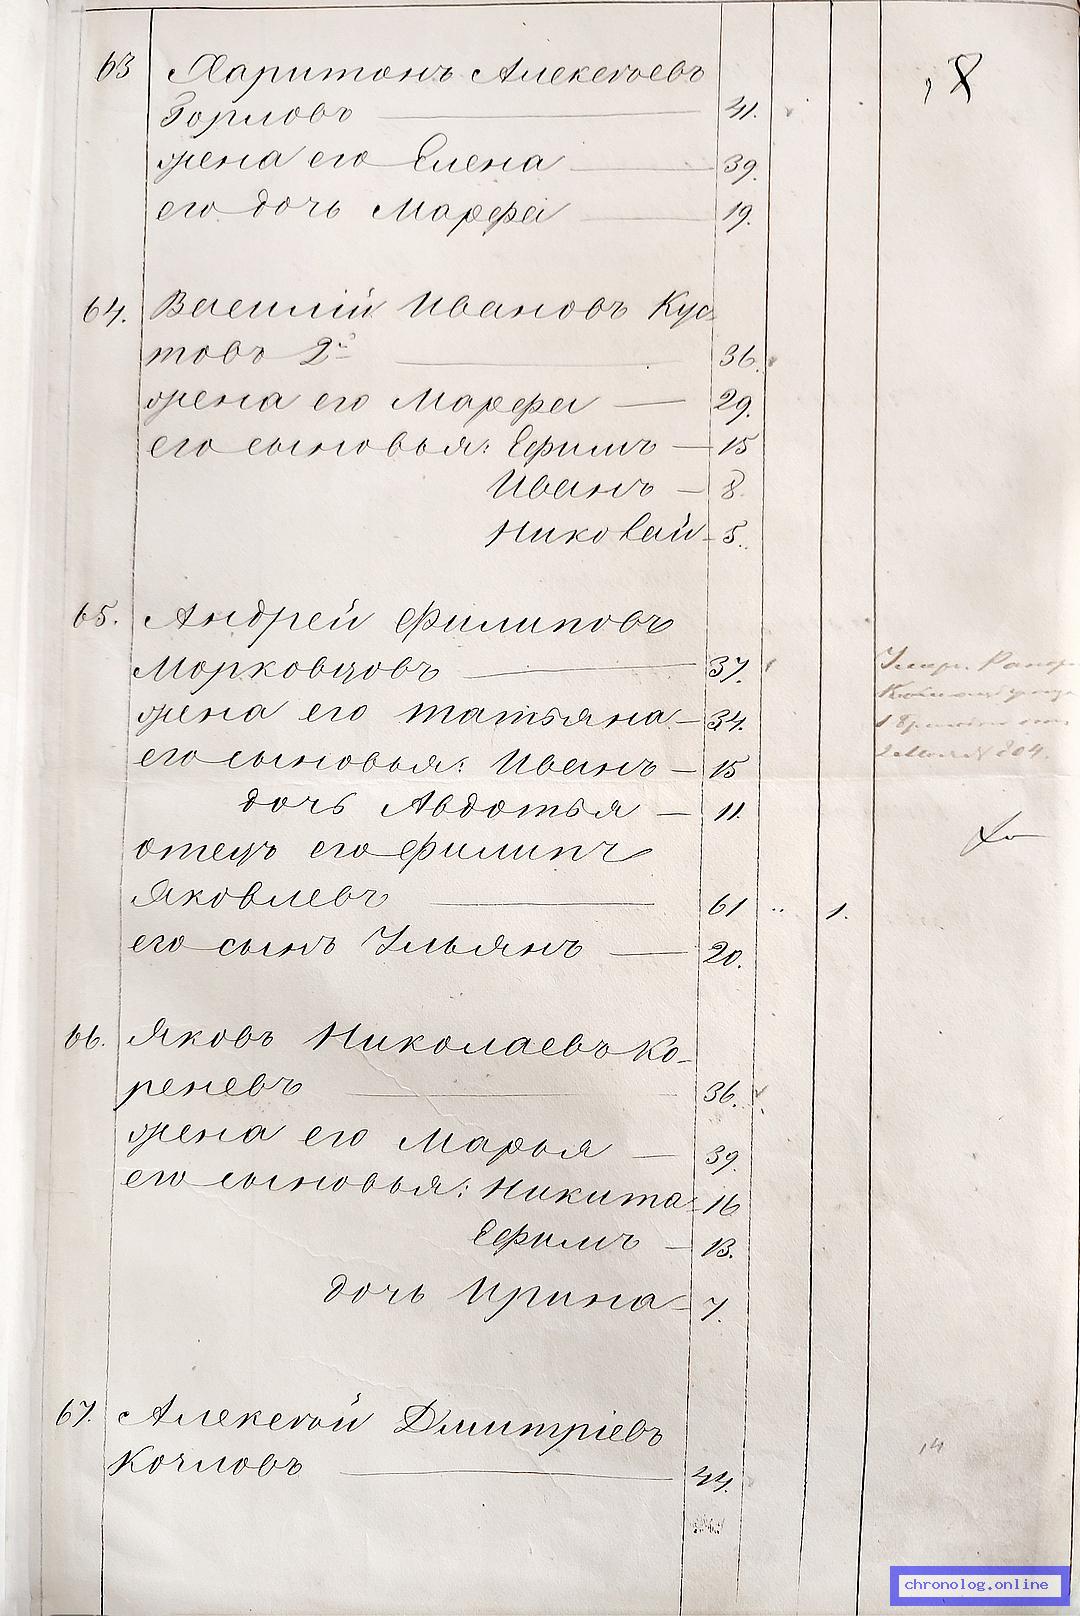 18
63 Харитонъ Алексѣевъ
Горловъ 41.
жена его Елена 39.
его дочь Марфа 19.
64. Василій Ивановъ Кус-
товъ 2й 36.
жена его Марфа 29.
его сыновья: Ефимъ 15
Иванъ 8.
Николай 5.
65. Андрей Филиповъ
Морковцовъ 37.
жена его Татьяна 34.
его сыновья: Иванъ 15
дочь Авдотья 11.
отецъ его Филипъ
Яковлевъ 61 1.
его сынъ Ульянъ 20.
66. Яковъ Николаевъ Ко-
реневъ 36.
жена его Марья 39.
его сыновья: Никита 16
Ефимъ 13.
дочь Ирина 7.
67. Алексѣй Дмитріевъ
Козловъ 44.
14
chronolog.online